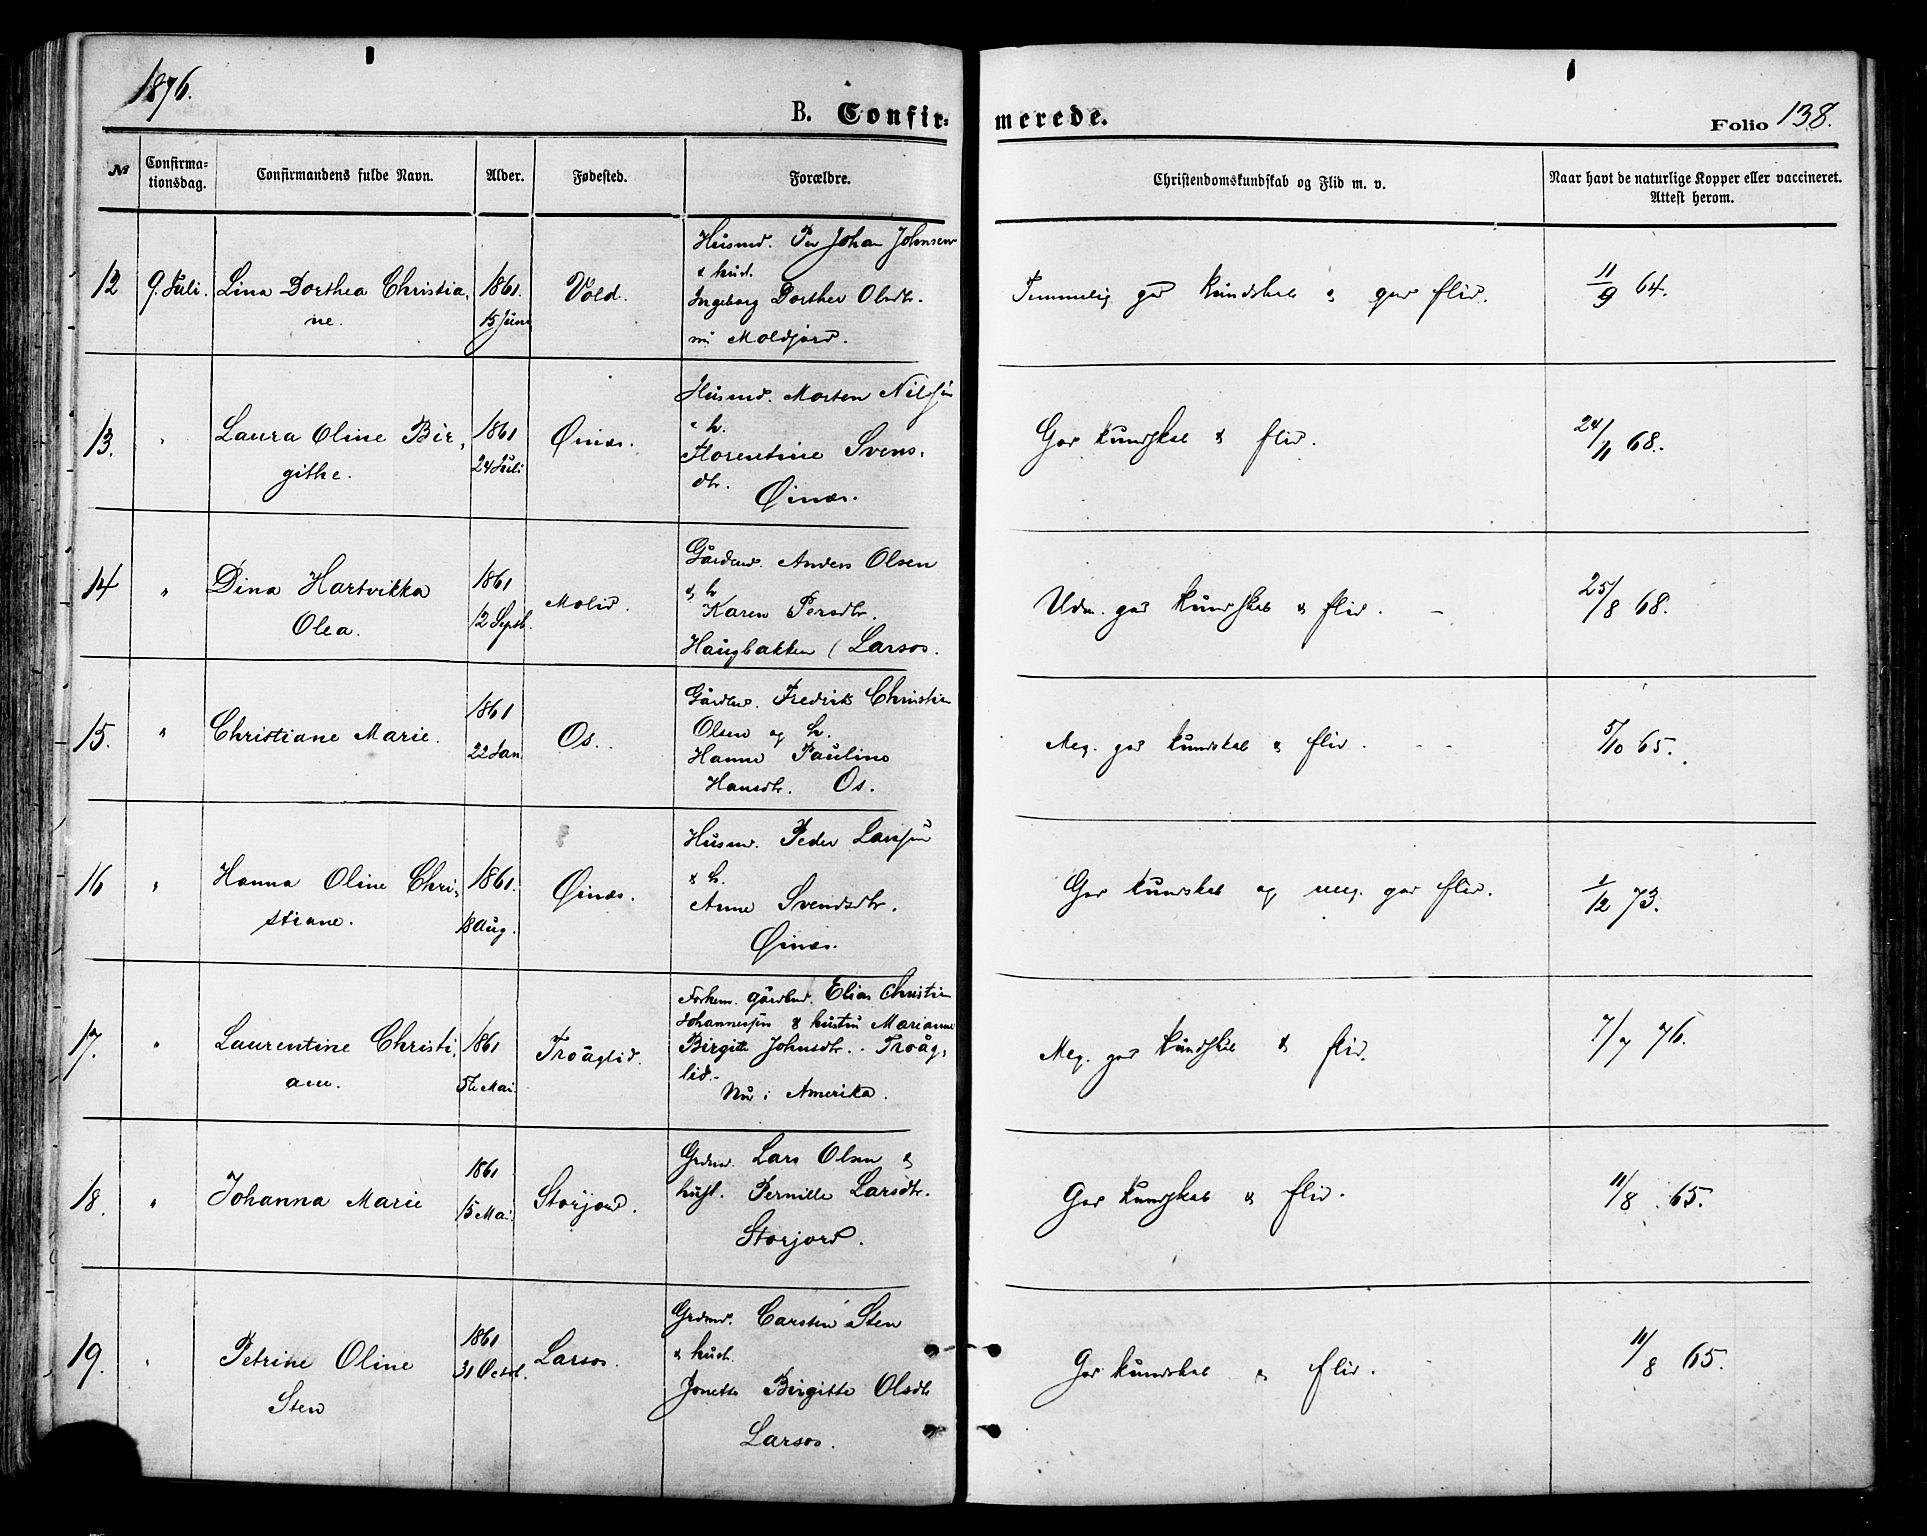 1876.
B. Confir-
merede.
Folio 138.
№
Confirma-
tionsdag.
Confirmandens fulde Navn.
Alder.
Fødested.
Forældre.
Christendomskundskab og Flid m. v.
Naar havt de naturlige Kopper eller vaccineret.
Attest herom.
12
9. Juli.
Lina Dorthea Christia-
ne.
1861.
15 Juni
Vold.
Husmd. Per Johan Johnsen
& hust.
Ingeborg Dorthea Olsdtr.
Moldjord.
Temmelig god Kundskab & god flid.
11/9 64.
13.
"
Laura Oline Bir-
githe.
1861
24 Juli
Øinæs.
Husmd. Morten Nilssen
& h.
Florentine Svens-
dtr.
Øinæs.
God Kundskab & flid.
24/11 68.
14
"
Dina Hartvikka
Olea.
1861
12 Septb.
Molid.
Gårdmd. Anders Olsen
& h
Karen Persdtr.
Haugbakken ( Larsos.
Udm. god Kundskab & flid. -
25/8 68.
15.
"
Christiane Marie.
1861
22 Jan.
Os.
Gårdbr. Fredrik Christian
Olsen og h.
Hanne Pauline
Hansdtr. Os.
Meg. god Kundskab & flid. - -
5/10 65.
16
"
Hanna Oline Chri-
stiane.
1861.
18 Aug.
Øinæs.
Husmd. Peder Larssen
& h.
Anne Svendsdtr.
Øinæs.
God Kundskab og meg. god flid.
1/12 73.
17.
"
Laurentine Christi-
ane.
1861
5te Mai.
Troåglid.
Forhen. gårdbrd. Elias Christian
Johannessen & hustru Marianne
Birgitte Johnsdtr. - Troåg-
lid. -
Nu i Amerika.
Meg. god Kundskab & flid.
7/7 76.
18.
"
Johanna Marie
1861
15 Mai.
Storjord.
Grdmd. Lars Olsen &
hust. Pernille Larsdtr.
Storjord.
God Kundskab & flid.
11/8 65.
19.
"
Petrine Oline
Sten
1861
31 Octob.
Larsos.
Grdmd. Carsten Sten
& hust.
Jonette Birgitte Olsdtr
Larsos.
God Kundskab & flid.
11/8 65.